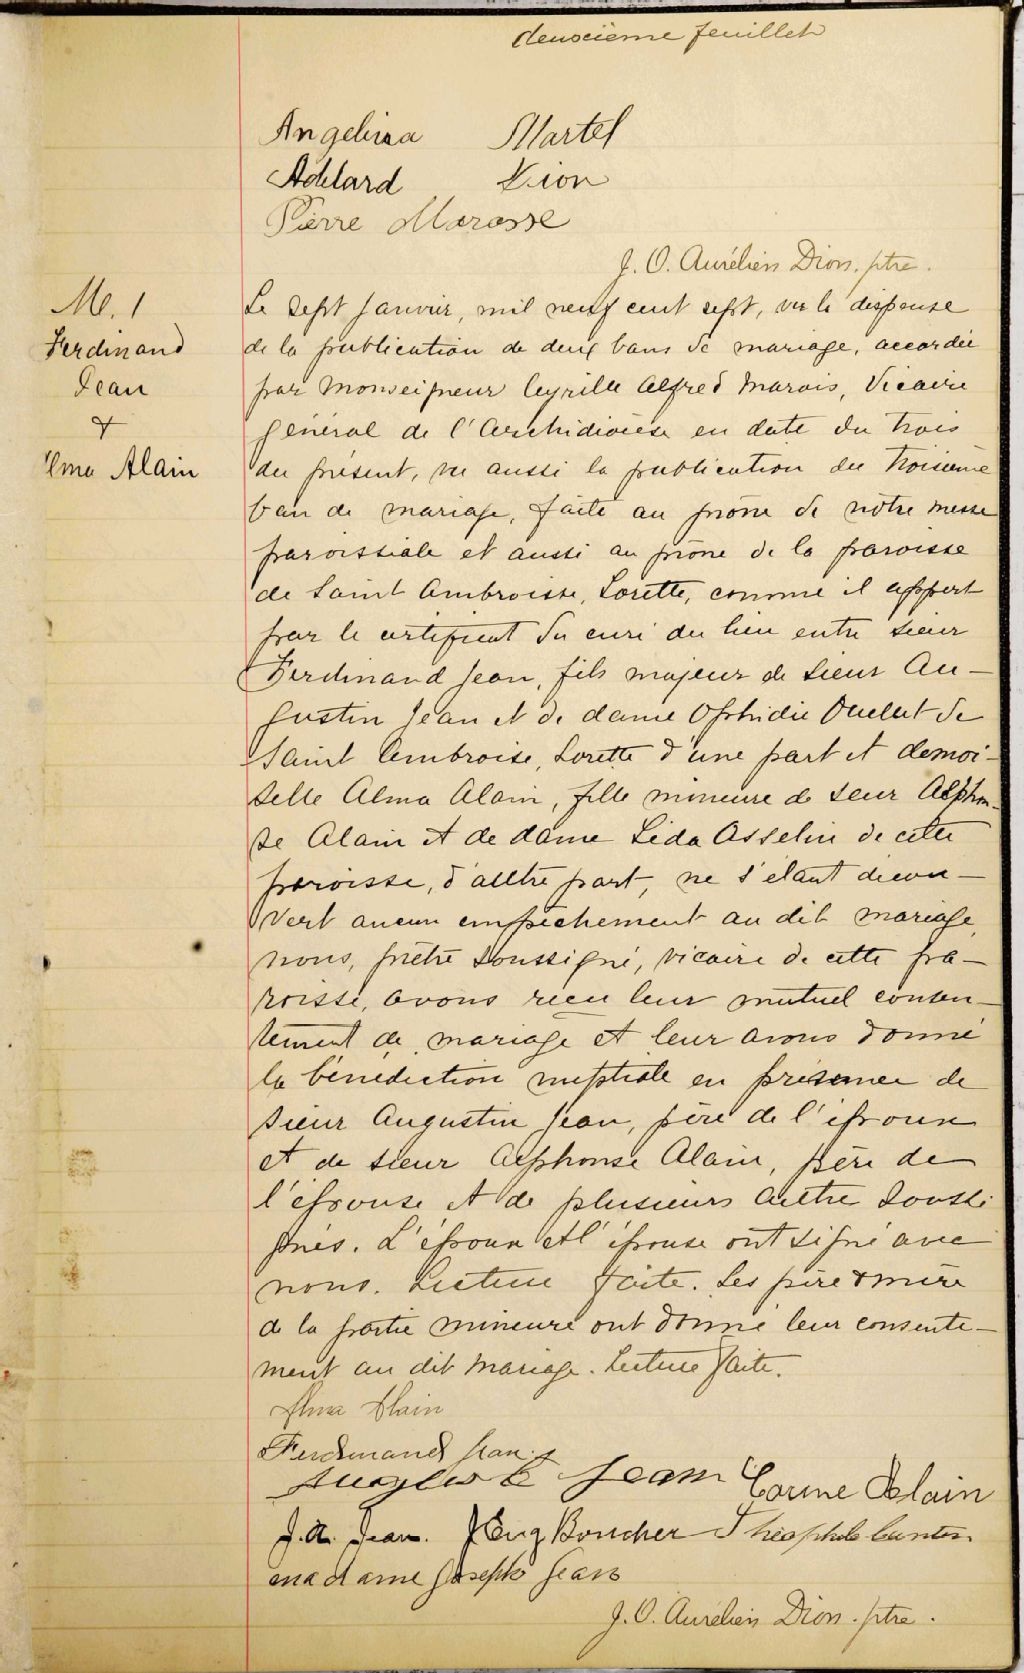 deuxième feuillet
Angelina Martel
Adélard Dion
Pierre Marosse
J. O. Aurélien Dion. ptre.
M. 1
Ferdinand
Jean
&
Alma Alain
Le sept janvier, mil neuf cent sept, vu la dispense
de la publication de deux bans de mariage, accordée
par Monseigneur Cyrille Alfred Marois, Vicaire
général de l'Archidiocèse en date du trois
du présent, vu aussi la publication du troisième
ban de mariage, faite au prône de notre messe
paroissiale et aussi au prône de la paroisse
de Saint Ambroise, Lorette, comme il appert
par le certificat du curé du lieu entre sieur
Ferdinand Jean, fils majeur de sieur Au-
gustin Jean et de dame Ophidie Ouellet de
Saint Ambroise, Lorette d'une part et demoi-
selle Alma Alain, fille mineure de sieur Alphon-
se Alain et de dame Léda Asselin de cette
paroisse, d'autre part, ne s'étant décou-
vert aucun empêchement au dit mariage,
nous, prêtre soussigné, vicaire de cette pa-
roisse, avons reçu leur mutuel consen-
tement de mariage et leur avons donné
la bénédiction nuptiale en présence de
sieur Augustin Jean, père de l'époux
et de sieur Alphonse Alain, père de
l'épouse et de plusieurs autre soussi
gnés. L'époux et l'épouse ont signé avec
nous. Lecture faite. Les père & mère
de la partie mineure ont donné leur consente-
ment au dit mariage. Lecture faite.
Alma Alain
Ferdinand Jean
Jean Corine Alain
J. A. Jean. J Eug Boucher Théophile
madame Joseph Jean
J. O. Aurélien Dion. ptre.